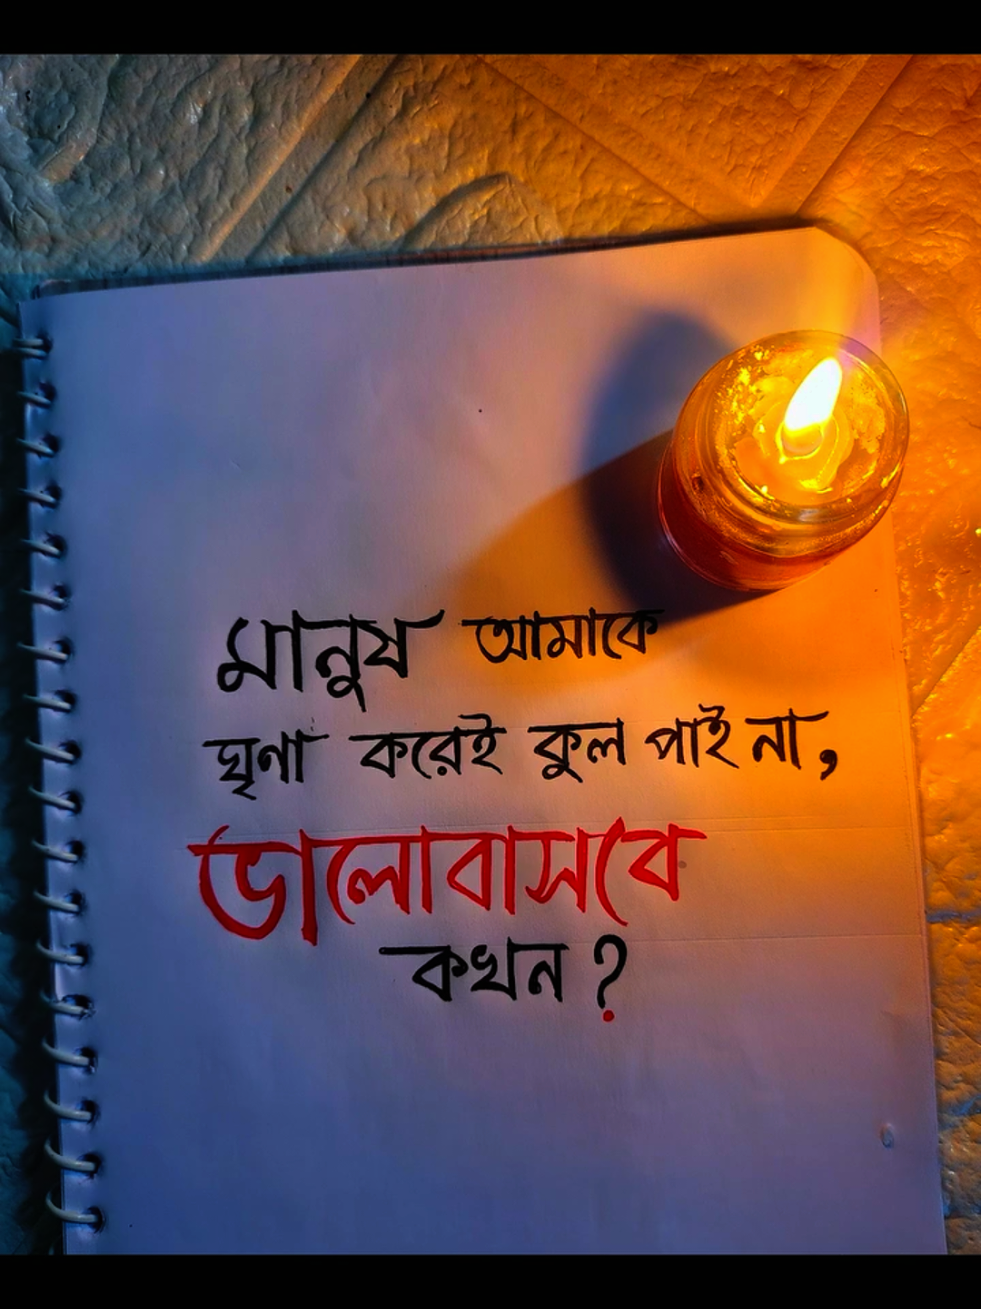 মানুষ আমাকে
ঘৃণা করেই কুল পাই না,
ভালোবাসবে
কখন ?